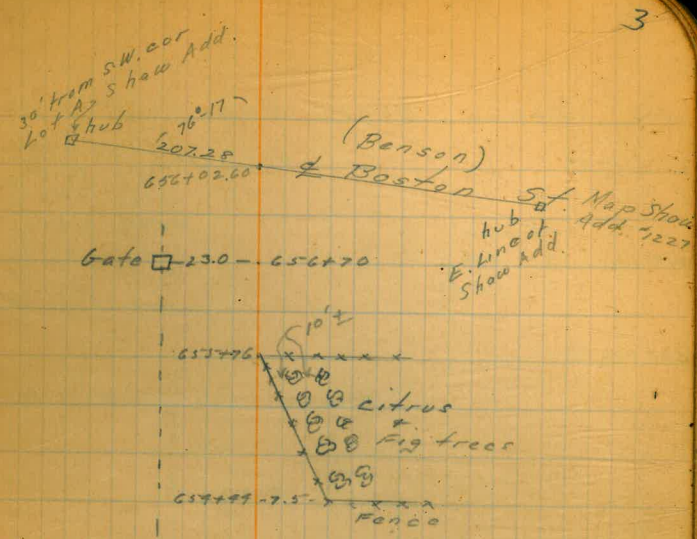 3
30' from S.W. cor
Lot A, Shaw Add.
hub
76°-17'
207.28
656+02.60
(Benson)
℄ Boston St.
Map Shaw
Add. #1227
hub
E. Line of
Shaw Add.
Gate -23.0- 656+70
10'±
653+76
citrus
&
Fig trees
659+99-7.5-
Fence